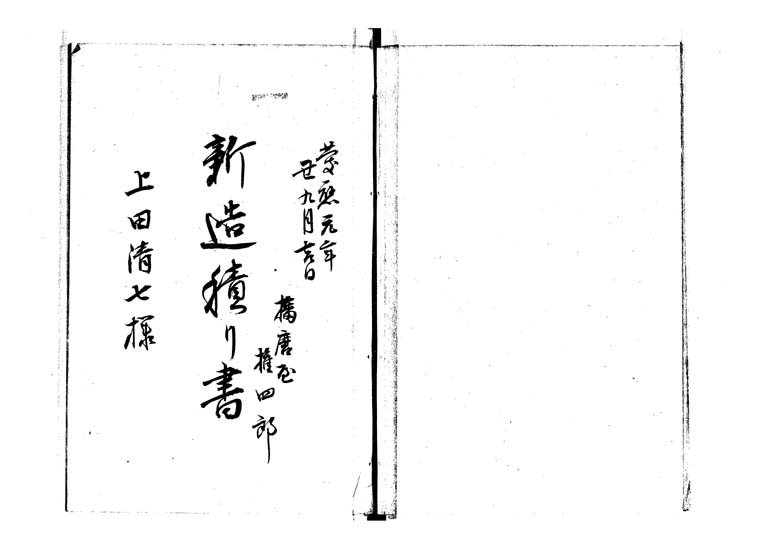 慶應元年
丑九月吉日
播磨屋
権四郎
新造積り書
上田清七様